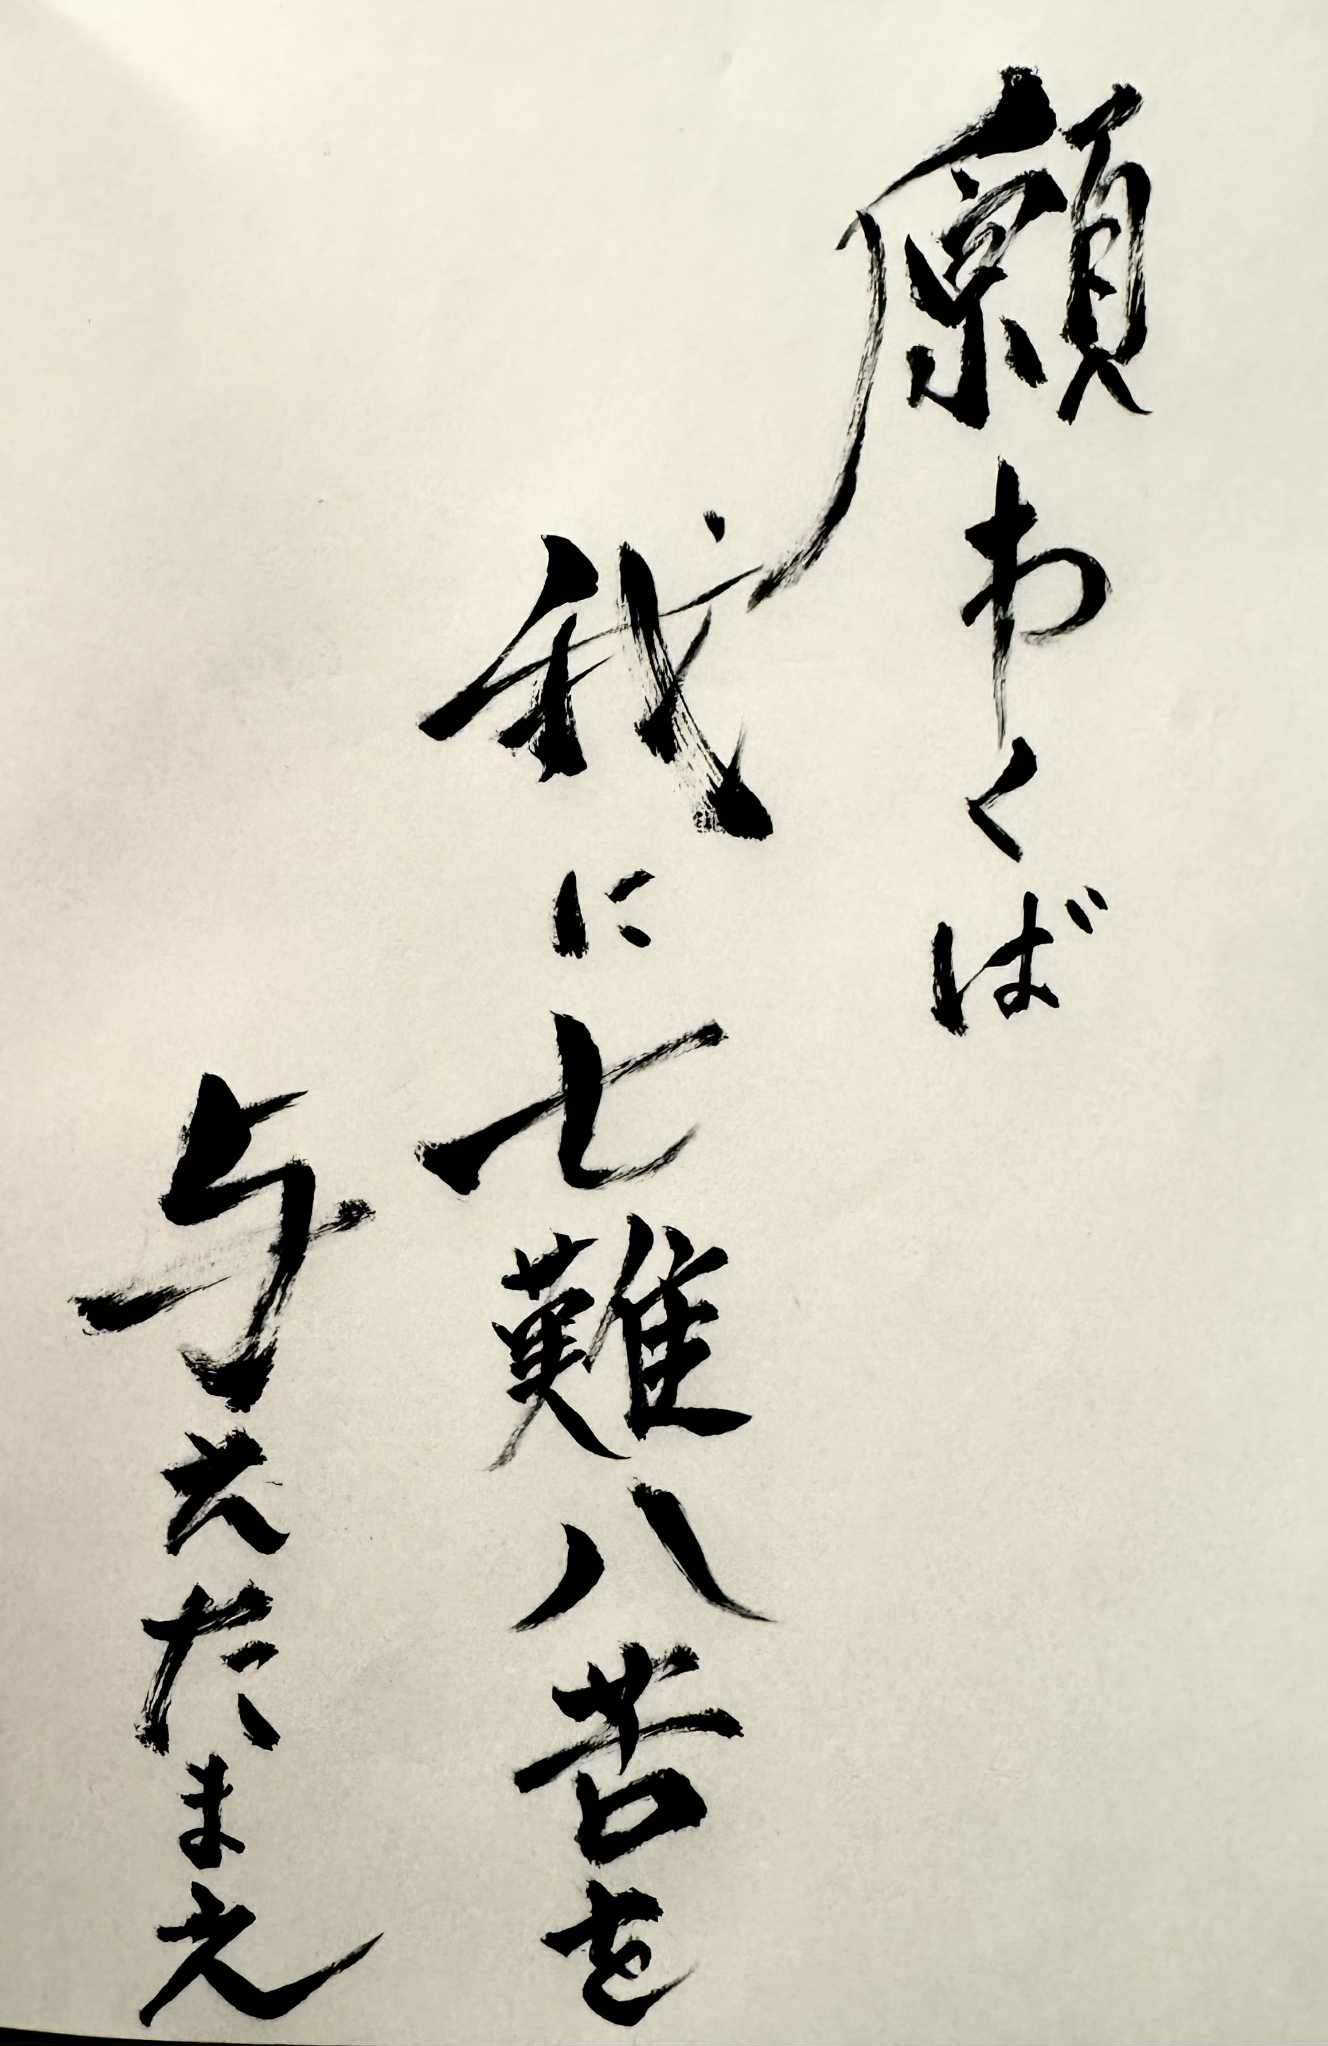 願わくば
我に七難八苦を
与えたまえ